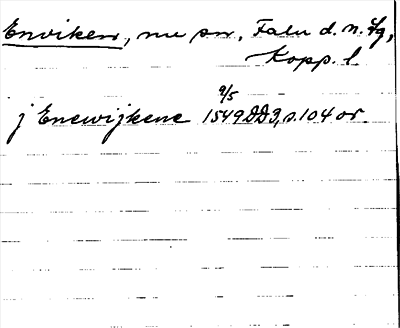 Enviken, nu sn, Falu d. n. tg,
Kopp. l.
9/5
j Enewijkene 1549 DD3, s. 104 or.